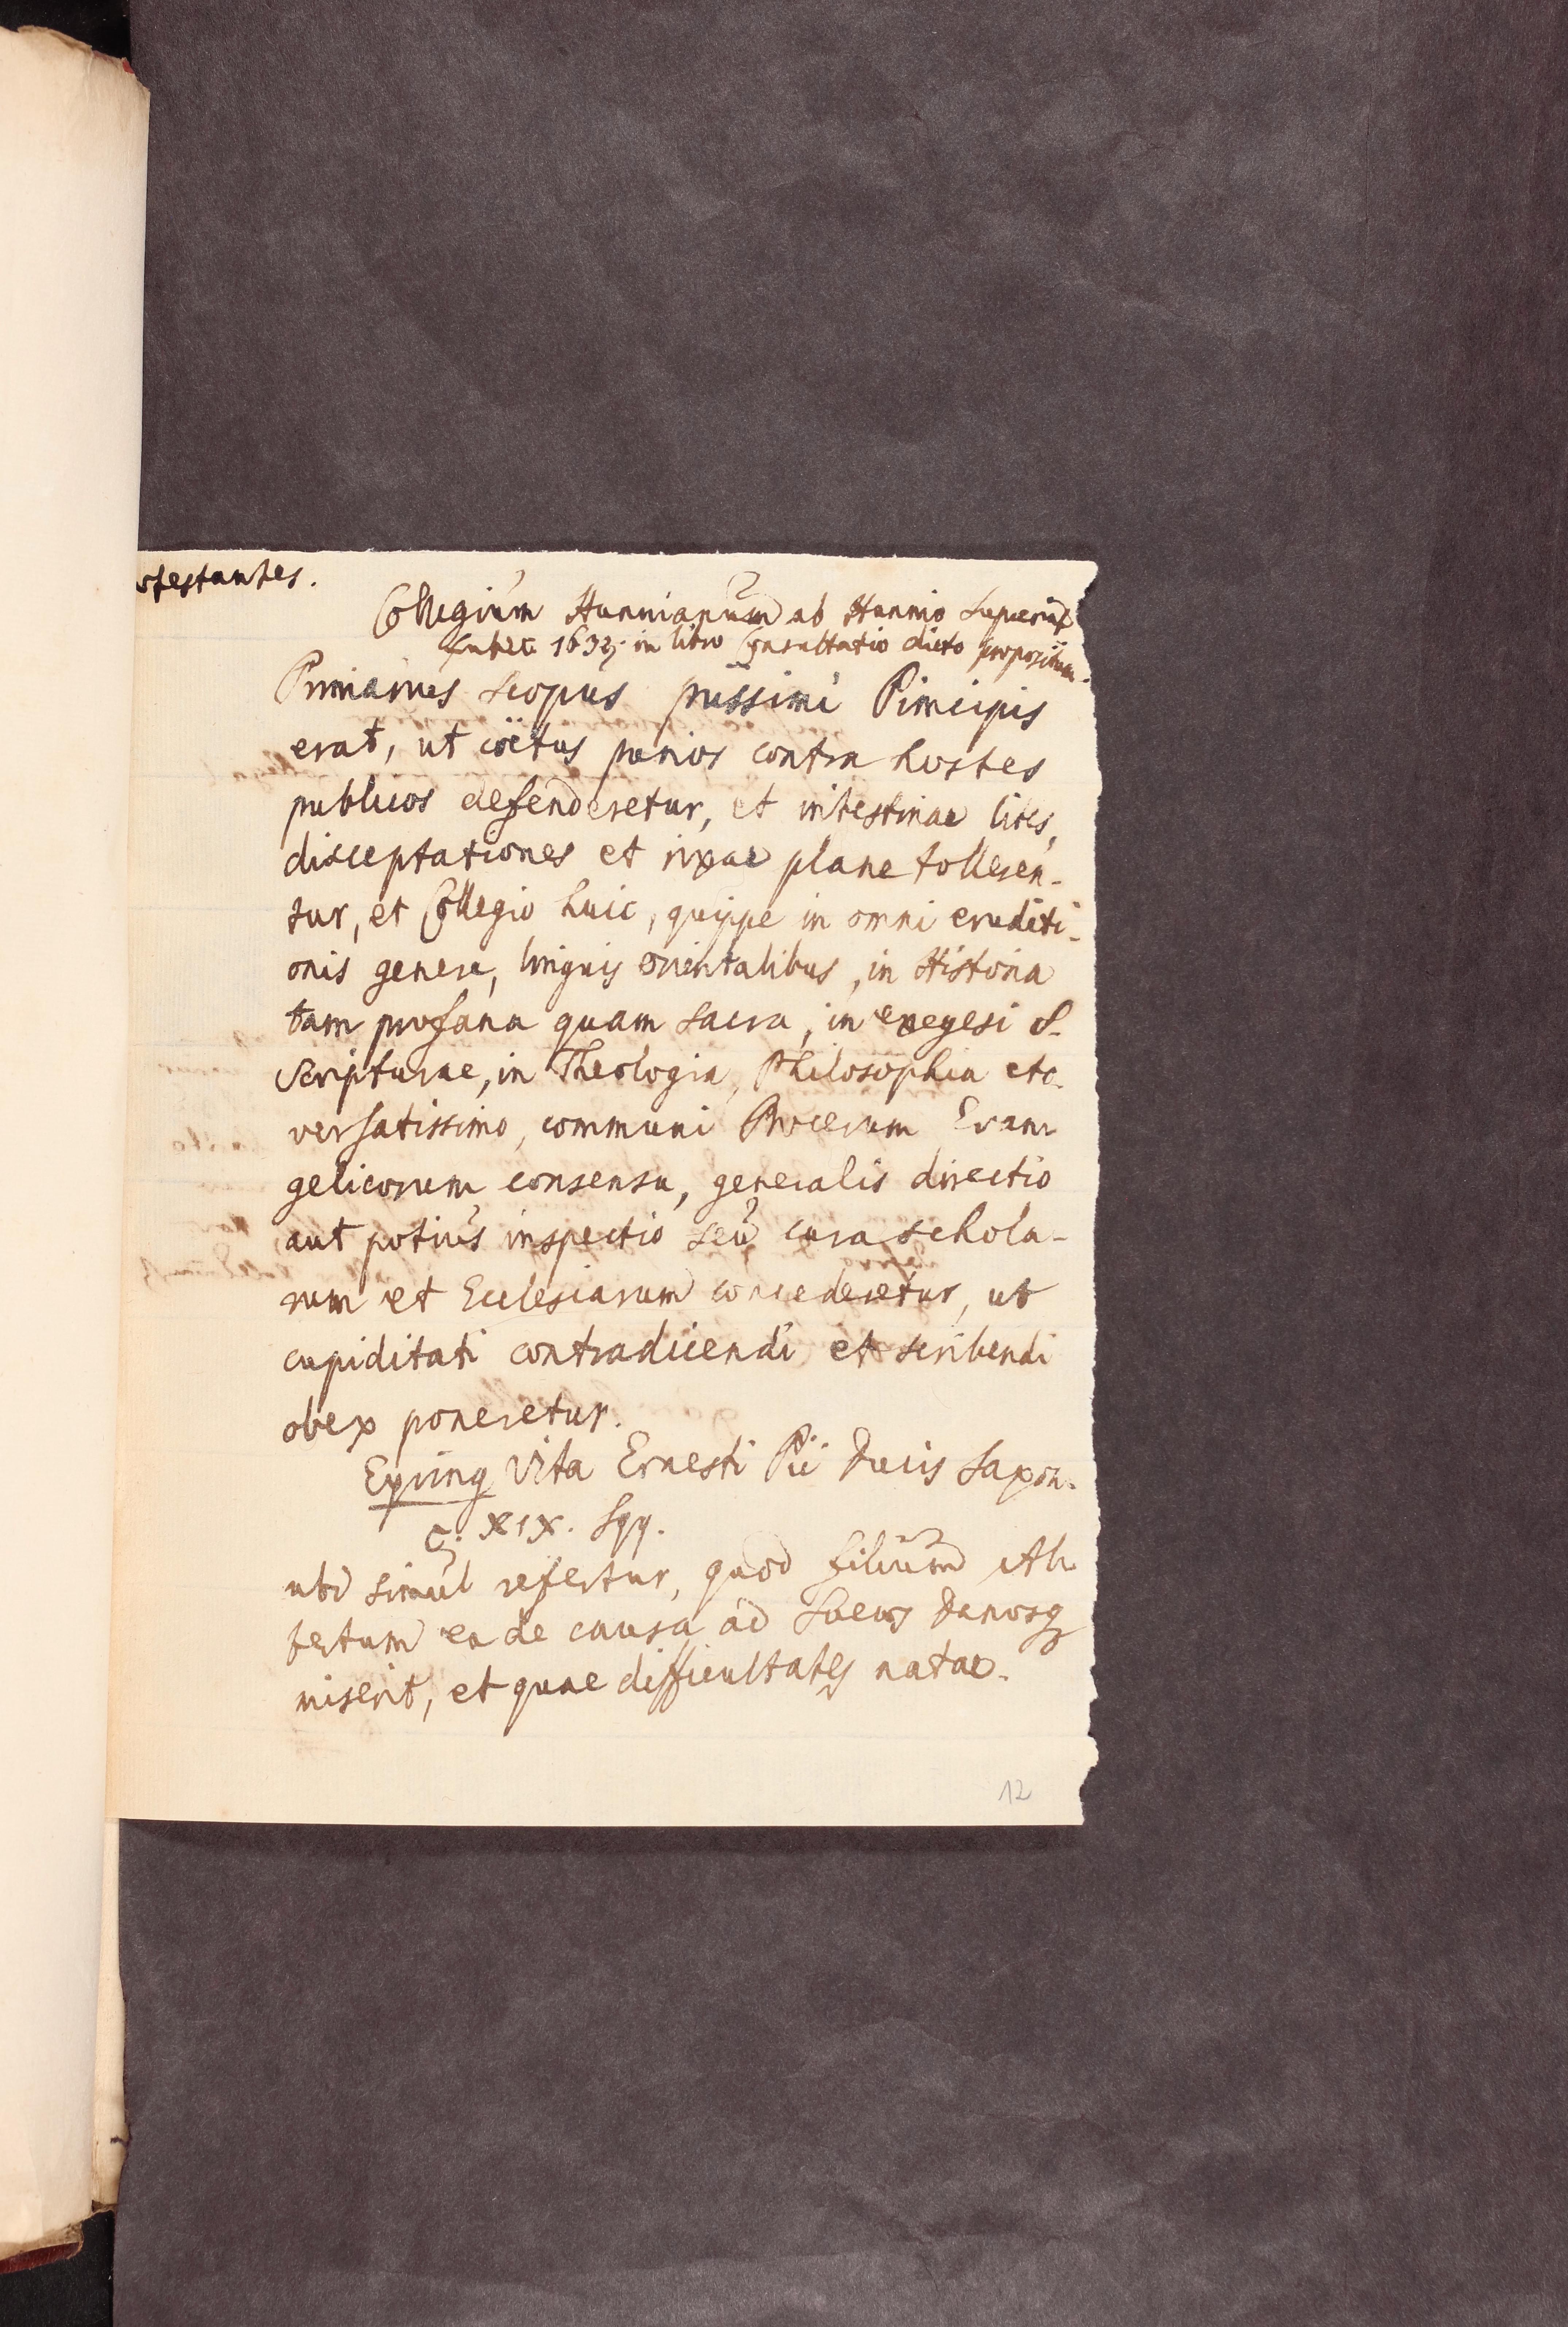 otestantes.
Collegium Hunnianum ab Hunnio Superint
Lubec 1632. in libro Consultatio dicto propositum.
Primarius scopus piissimi Pimcipis
erat, ut coëtus purior contra hostes
publicos defenderetur, et intestinae lites,
disceptationes et rixae plane tolleren-
tur, et Collegio huic, quippe in omni eruditi-
onis genere, linguis orientalibus, in Historia
tam profana quam sacra, in exegesi S.
Scripturae, in Theologia, Philosophia etc.
versatissimo, communi Procerum Evan-
gelicorum consensu, generalis directio
aut potius inspectio seu cura schola-
rum et Ecclesiarum concederetur, ut
cupiditati contradicendi et scribendi
obex poneretur.
Eyring Vita Ernesti Pii Ducis Saxon.
c. XIX. sqq.
ubi simul refertur, quod filium Al-
bertum ea de causa ad Suecos Danosq
miserit, et quae difficultates natae.
12